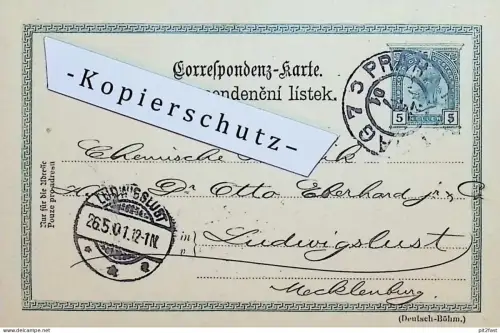 Correspondenz-Karte.
ndenční lístek.
-Kopierschutz-
PRAG 73 PRAHA
5 5
Nur für die Adresse
Pouze pro adresu
Chemische
Dr Otto Eberhard jr &
LUDWIGSLUST
26.5.01.12-1N.
in
v
Ludwigslust
Mecklenburg.
(Deutsch-Böhm.)